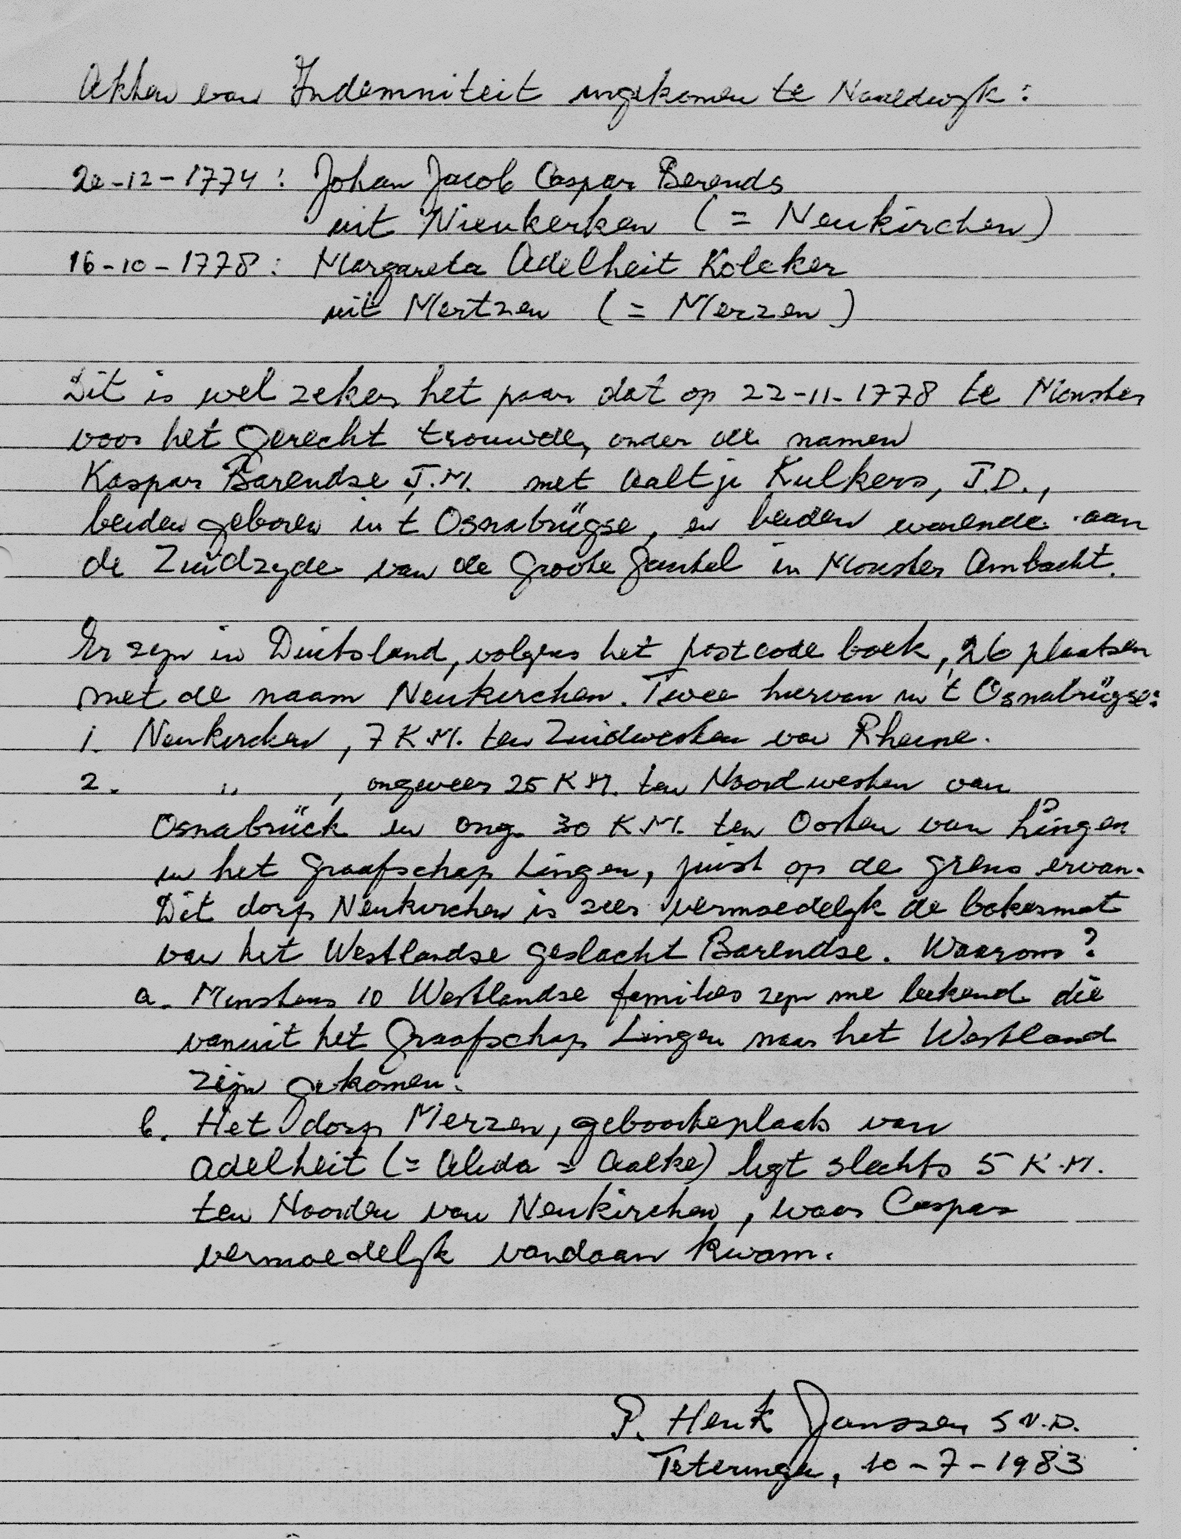 Akten van Indemniteit ingekomen te Naaldwijk:
20-12-1774: Johan Jacob Caspar Berends
uit Nieukerken (= Neukirchen)
16-10-1778: Margareta Adelheit Kolcker
uit Mertzen (= Merzen)
Dit is wel zeker het paar dat op 22-11-1778 te Monster
voor het Gerecht trouwde, onder de namen
Kaspar Barendse J.M. met Aaltje Kulkers, J.D.,
beiden geboren in 't Osnabrügse, en beiden wonende aan
de Zuidzyde van de Groote Gantel in Monster Ambacht.
Er zyn in Duitsland, volgens het postcode boek, 26 plaatsen
met de naam Neukirchen. Twee hiervan in 't Osnabrügse:
1. Neukirchen, 7 K.M. ten Zuidwesten van Rheine.
2. " , ongeveer 25 KM. ten Noordwesten van
Osnabrück en ong. 30 K.M. ten Oosten van Lingen
in het Graafschap Lingen, juist op de grens ervan.
Dit dorp Neukirchen is zeer vermoedelyk de bakermat
van het Westlandse geslacht Barendse. Waarom?
a. Minstens 10 Westlandse families zyn me bekend die
vanuit het Graafschap Lingen naar het Westland
zijn gekomen.
b. Het dorp Merzen, geboorteplaats van
Adelheit (= Alida = Aalke) ligt slechts 5 K.M.
ten Noorden van Neukirchen, waar Caspar
vermoedelyk vandaan kwam.
P. Henk Janssen S.V.D.
Teteringen, 10-7-1983